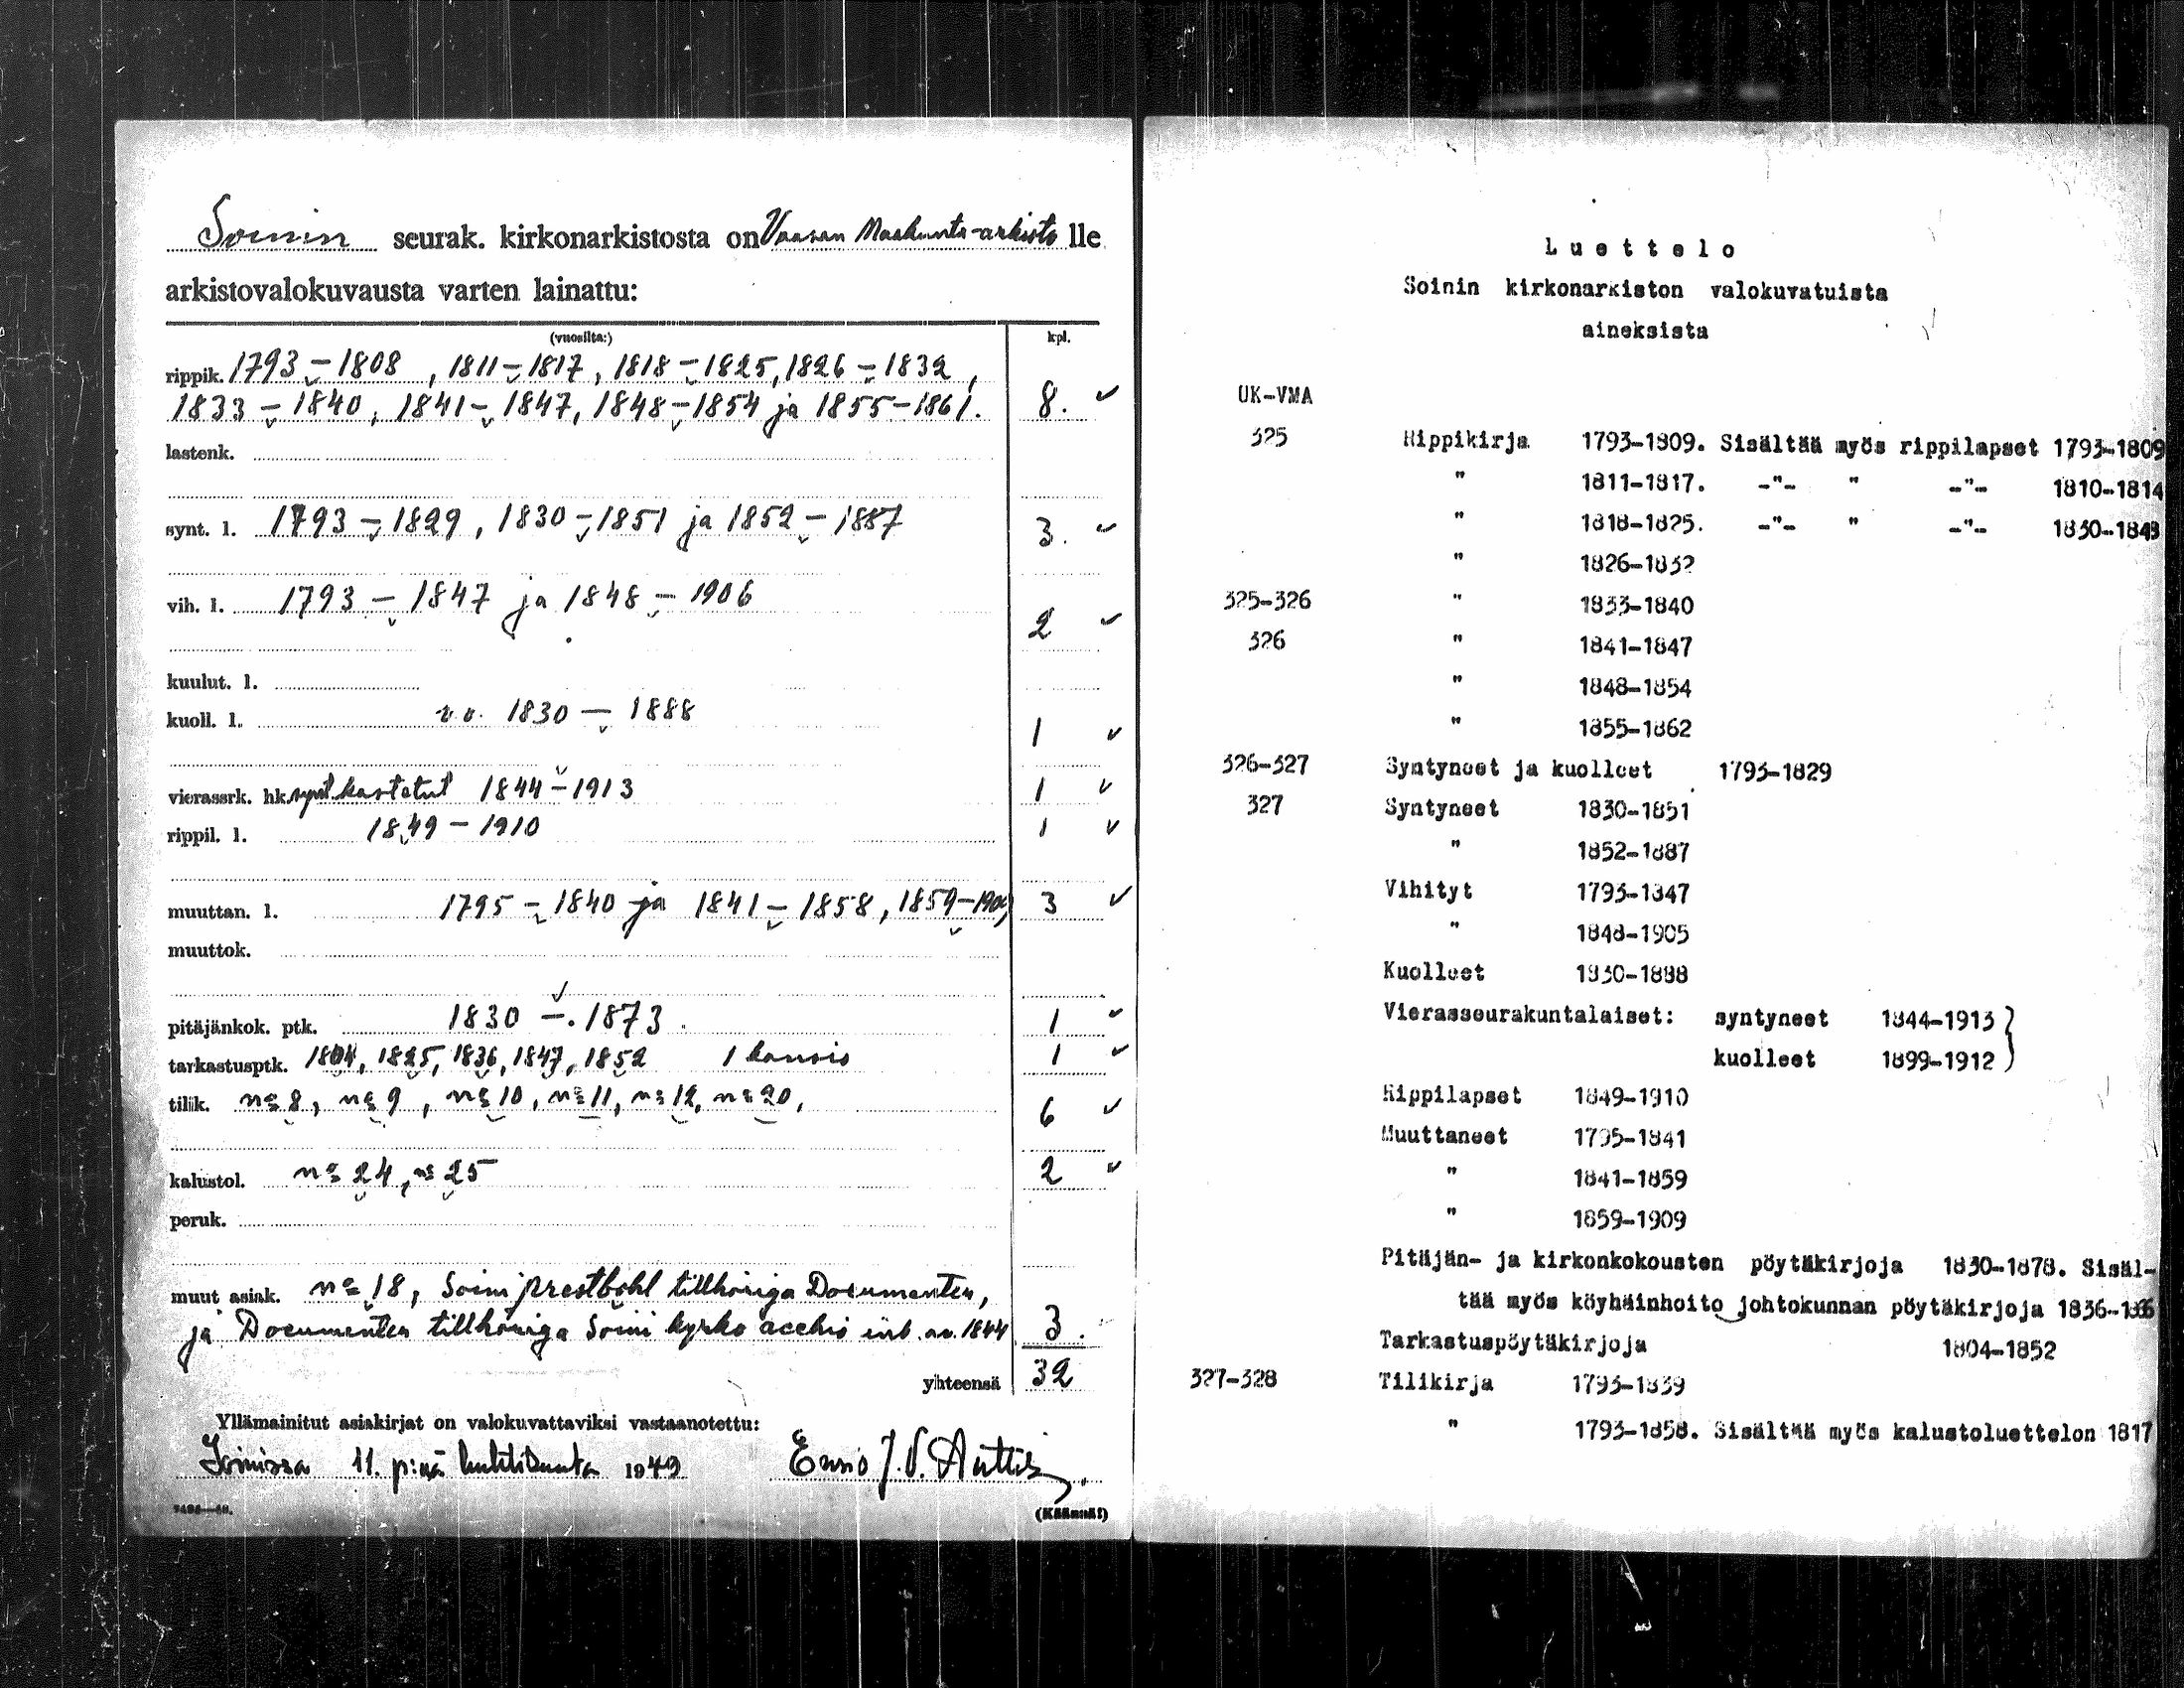 Soinin seurak. kirkonarkistosta on Vaasan Maakunta-arkisto lle
arkistovalokuvausta varten lainattu:
(vuosilta:) kpl.
rippik. 1793 – 1808, 1811 – 1817, 1818 – 1825, 1826 – 1832,
1833 – 1840, 1841 – 1847, 1848 – 1854 ja 1855 – 1861. 8.
lastenk.
synt. l. 1793 – 1829, 1830 – 1851 ja 1852 – 1887 3.
vih. l. 1793 – 1847 ja 1848 – 1906 2
kuulut. l.
kuoll. l. v.v. 1830 – 1888 1
vierassrk. hk. synt. kastetut 1844 – 1913 1
rippil. l. 1849 – 1910 1
muuttan. l. 1795 – 1840 ja 1841 – 1858, 1859 – 3
muuttok.
pitäjänkok. ptk. 1830 – 1873. 1
tarkastusptk. 1804, 1825, 1836, 1847, 1852 1 kansio 1
tilik. n:o 8, n:o 9, n:o 10, n:o 11, n:o 12, n:o 20, 6
kalustol. n:o 24, n:o 25 2
peruk.
muut asiak. n:o 18, Soini prestbohl tillhöriga Documenten,
ja Documenter tillhöriga Soini kyrko 1844 3.
yhteensä 32
Yllämainitut asiakirjat on valokuvattaviksi vastaanotettu:
Soinissa 11. p:nä huhtikuuta 1949 J.V.
(Käännä!)
Luettelo
Soinin kirkonarkiston valokuvatuista
aineksista
UK-VMA
325 Rippikirja 1793-1809. Sisältää myös rippilapset 1793-1809
" 1811-1817. -"- " -"- 1810-1814
" 1818-1825. -"- " -"- 1830-1843
" 1826-1832
325-326 " 1833-1840
326 " 1841-1847
" 1848-1854
" 1855-1862
326-327 Syntyneet ja kuolleet 1793-1829
327 Syntyneet 1830-1851
" 1852-1887
Vihityt 1793-1847
" 1848-1905
Kuolleet 1830-1888
Vierasseurakuntalaiset: syntyneet 1844-1913 }
kuolleet 1899-1912 )
Rippilapset 1849-1910
Muuttaneet 1795-1841
" 1841-1859
" 1859-1909
Pitäjän- ja kirkonkokousten pöytäkirjoja 1830-1878. Sisäl-
tää myös köyhäinhoito johtokunnan pöytäkirjoja 1836-
Tarkastuspöytäkirjoja 1804-1852
327-328 Tilikirja 1793-1839
" 1793-1858. Sisältää myös kalustoluettelon 1817